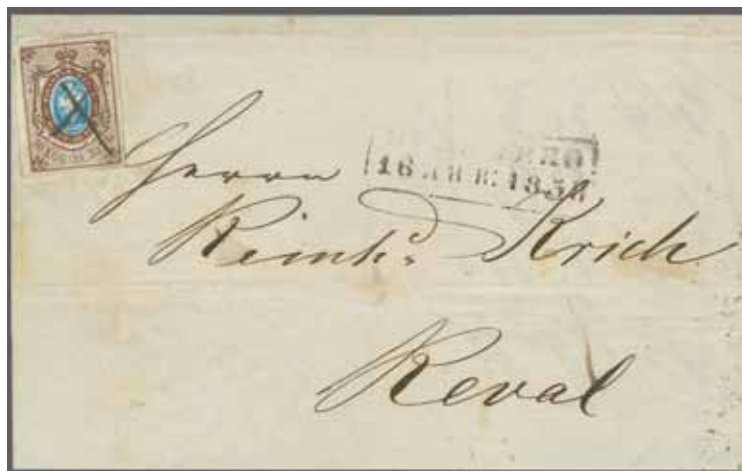 Herrn
16 ЯНВ: 1858
Reinhd. Krich
Reval